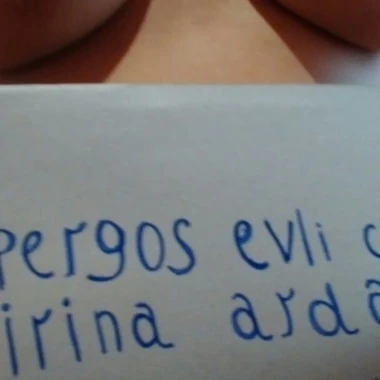 pergos evli
irina arda